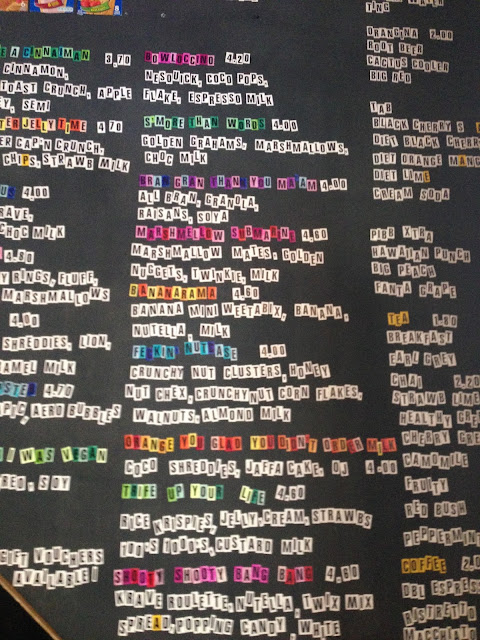 E A CINNAIMAN 3.70
CINNAMON,
TOAST CRUNCH, APPLE
Y, SEMI
TER JELLY TIME 4.70
ER CAP'N CRUNCH,
CHIPS, STRAWB MILK
US 4.00
RAVE,
CHOC MILK
4.80
Y RINGS, FLUFF,
MARSHMALLOWS
4.00
SHREDDIES, LION,
AMEL MILK
4.70
PIC, AERO BUBBLES
I WAS VEGAN
REO, SOY
GIFT VOUCHERS
AVAILABLE!
BOWLOCCINO 4.20
NESQUICK, COCO POPS,
FLAKE, ESPRESSO MILK
S'MORE THAN WORDS 4.00
GOLDEN GRAHAMS, MARSHMALLOWS,
CHOC MILK
BRAN GRAN THANK YOU MA'AM 4.00
ALL BRAN, GRANOLA,
RAISANS, SOYA
MARSHMELLOW SUBMARINE 4.60
MARSHMALLOW MATES, GOLDEN
NUGGETS, TWINKIE, MILK
BANANARAMA 4.60
BANANA MINI WEETABIX, BANANA,
NUTELLA, MILK
FEKIN' NUTCASE 4.60
CRUNCHY NUT CLUSTERS, HONEY
NUT CHEX, CRUNCHY NUT CORN FLAKES,
WALNUTS, ALMOND MILK
ORANGE YOU GLAD YOU DIDN'T ORDER MILK
COCO SHREDDIES, JAFFA CAKE, OJ 4.00
TRIFE UP YOUR LIFE 4.60
RICE KRISPIES, JELLY, CREAM, STRAWBS
100'S 1000'S, CUSTARD MILK
SHOOTY SHOOTY BANG BANG 4.60
KRAVE ROULETTE, NUTELLA, TWIX MIX
SPREAD, POPPING CANDY, WHITE
WATER
TING
ORANGINA 2.00
ROOT BEER
CACTUS COOLER
BIG RED
TAB
BLACK CHERRY
DIET BLACK CHERRY
DIET ORANGE MANG
DIET LIME
CREAM SODA
PIBB XTRA
HAWAIIAN PUNCH
BIG PEACH
FANTA GRAPE
TEA 1.80
BREAKFAST
EARL GREY
CHAI 2.20
STRAWB LIME
HEALTHY GREE
CHERRY GREE
CAMOMILE
FRUITY
RED BUSH
PEPPERMINT
COFFEE 2.0
DBL ESPRESS
RISTRETTO